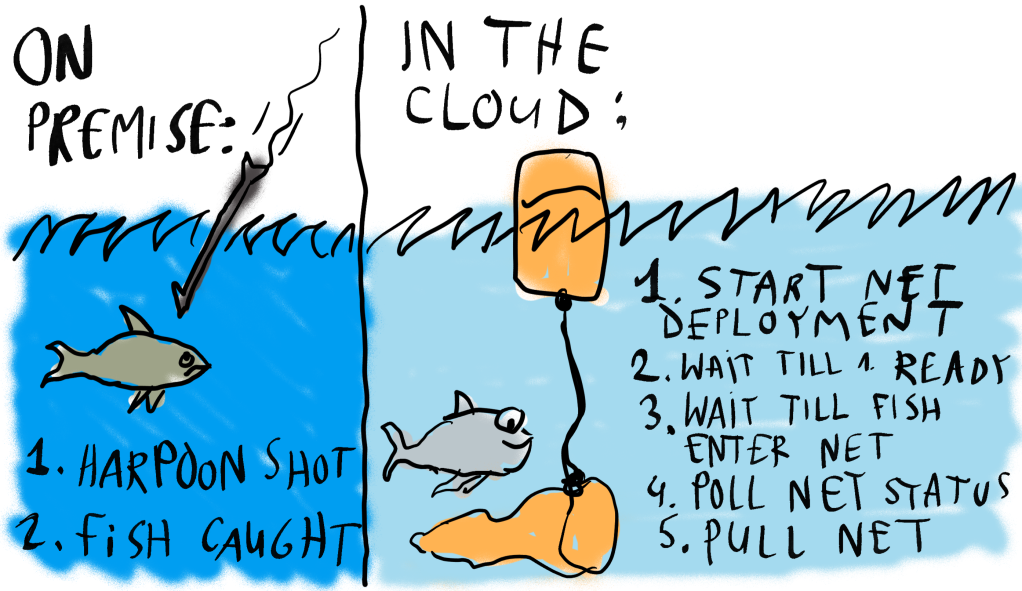 ON
PREMISE:
1. HARPOON SHOT
2. FISH CAUGHT
IN THE
CLOUD:
1. START NET
DEPLOYMENT
2. WAIT TILL 1. READY
3. WAIT TILL FISH
ENTER NET
4. POLL NET STATUS
5. PULL NET